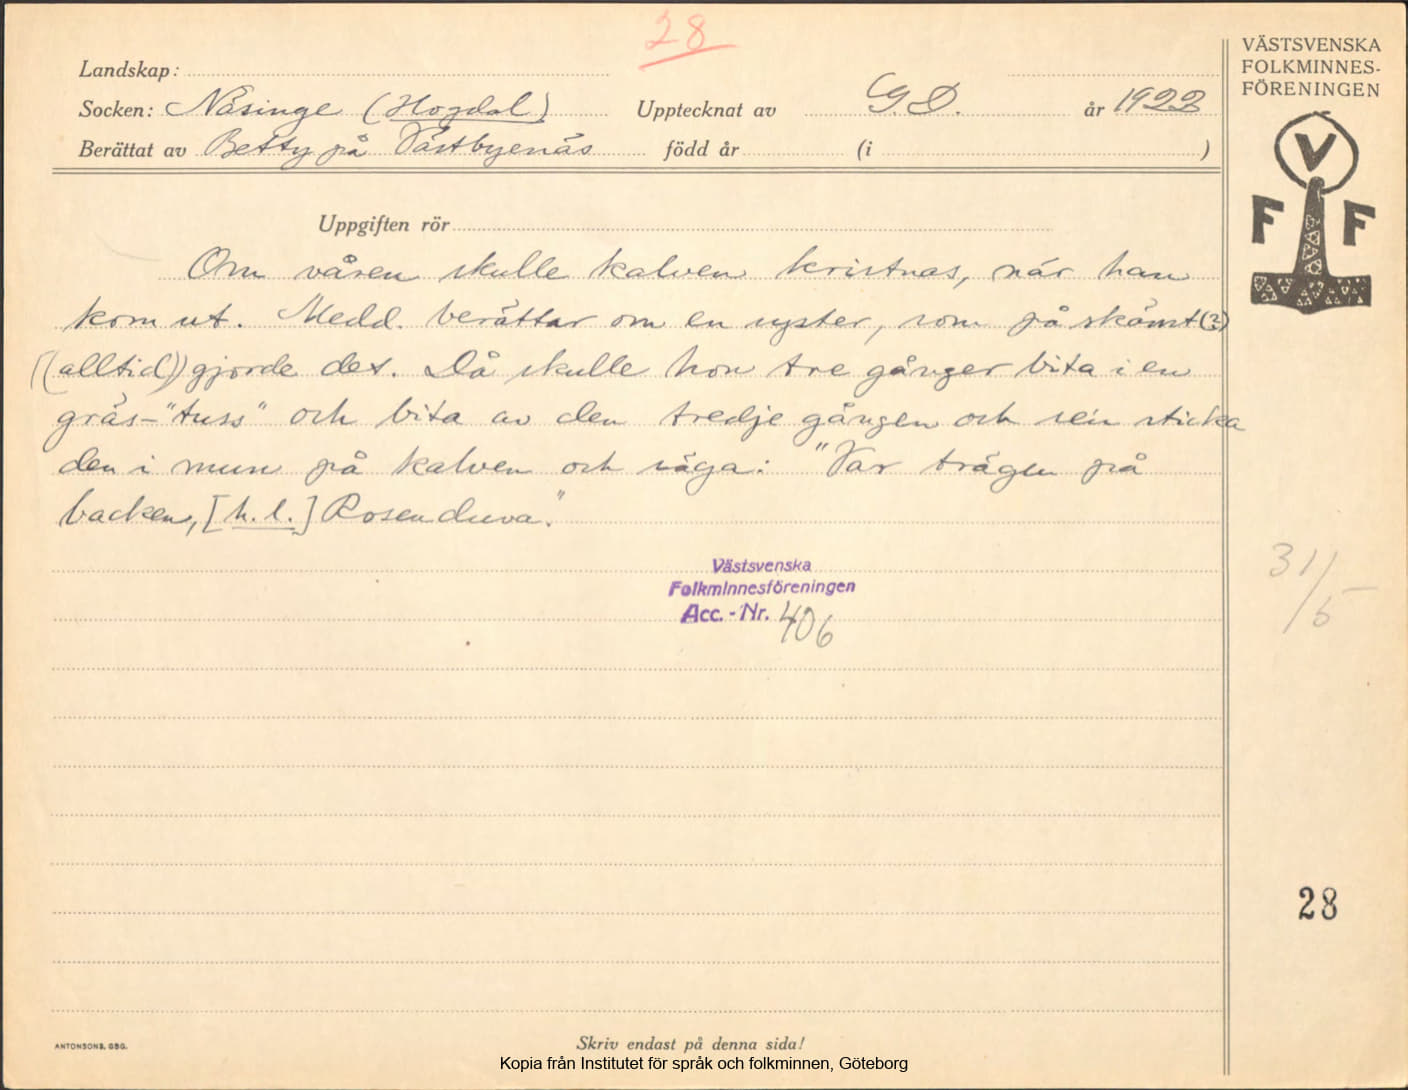 28
VÄSTSVENSKA
FOLKMINNES-
FÖRENINGEN
Landskap:
Socken: Näsinge (Hogdal) Upptecknat av G. D. år 1922
Berättat av Betty på Västbyenäs född år (i )
V
F F
Uppgiften rör
Om våren skulle kalven kristnas, når han
kom ut. Medd. berättar om en syster, som på skämt(?)
((alltid)) gjorde det. Då skulle hon tre gånger bita i en
gräs-"tuss" och bita av den tredje gången och sen sticka
den i mun på kalven och säga: "Var trägen på
backen, [h. l.] Rosenduva."
Västsvenska
Folkminnesföreningen
Acc. - Nr. 406
31/5
28
ANTONSONS, GBG.
Skriv endast på denna sida!
Kopia från Institutet för språk och folkminnen, Göteborg